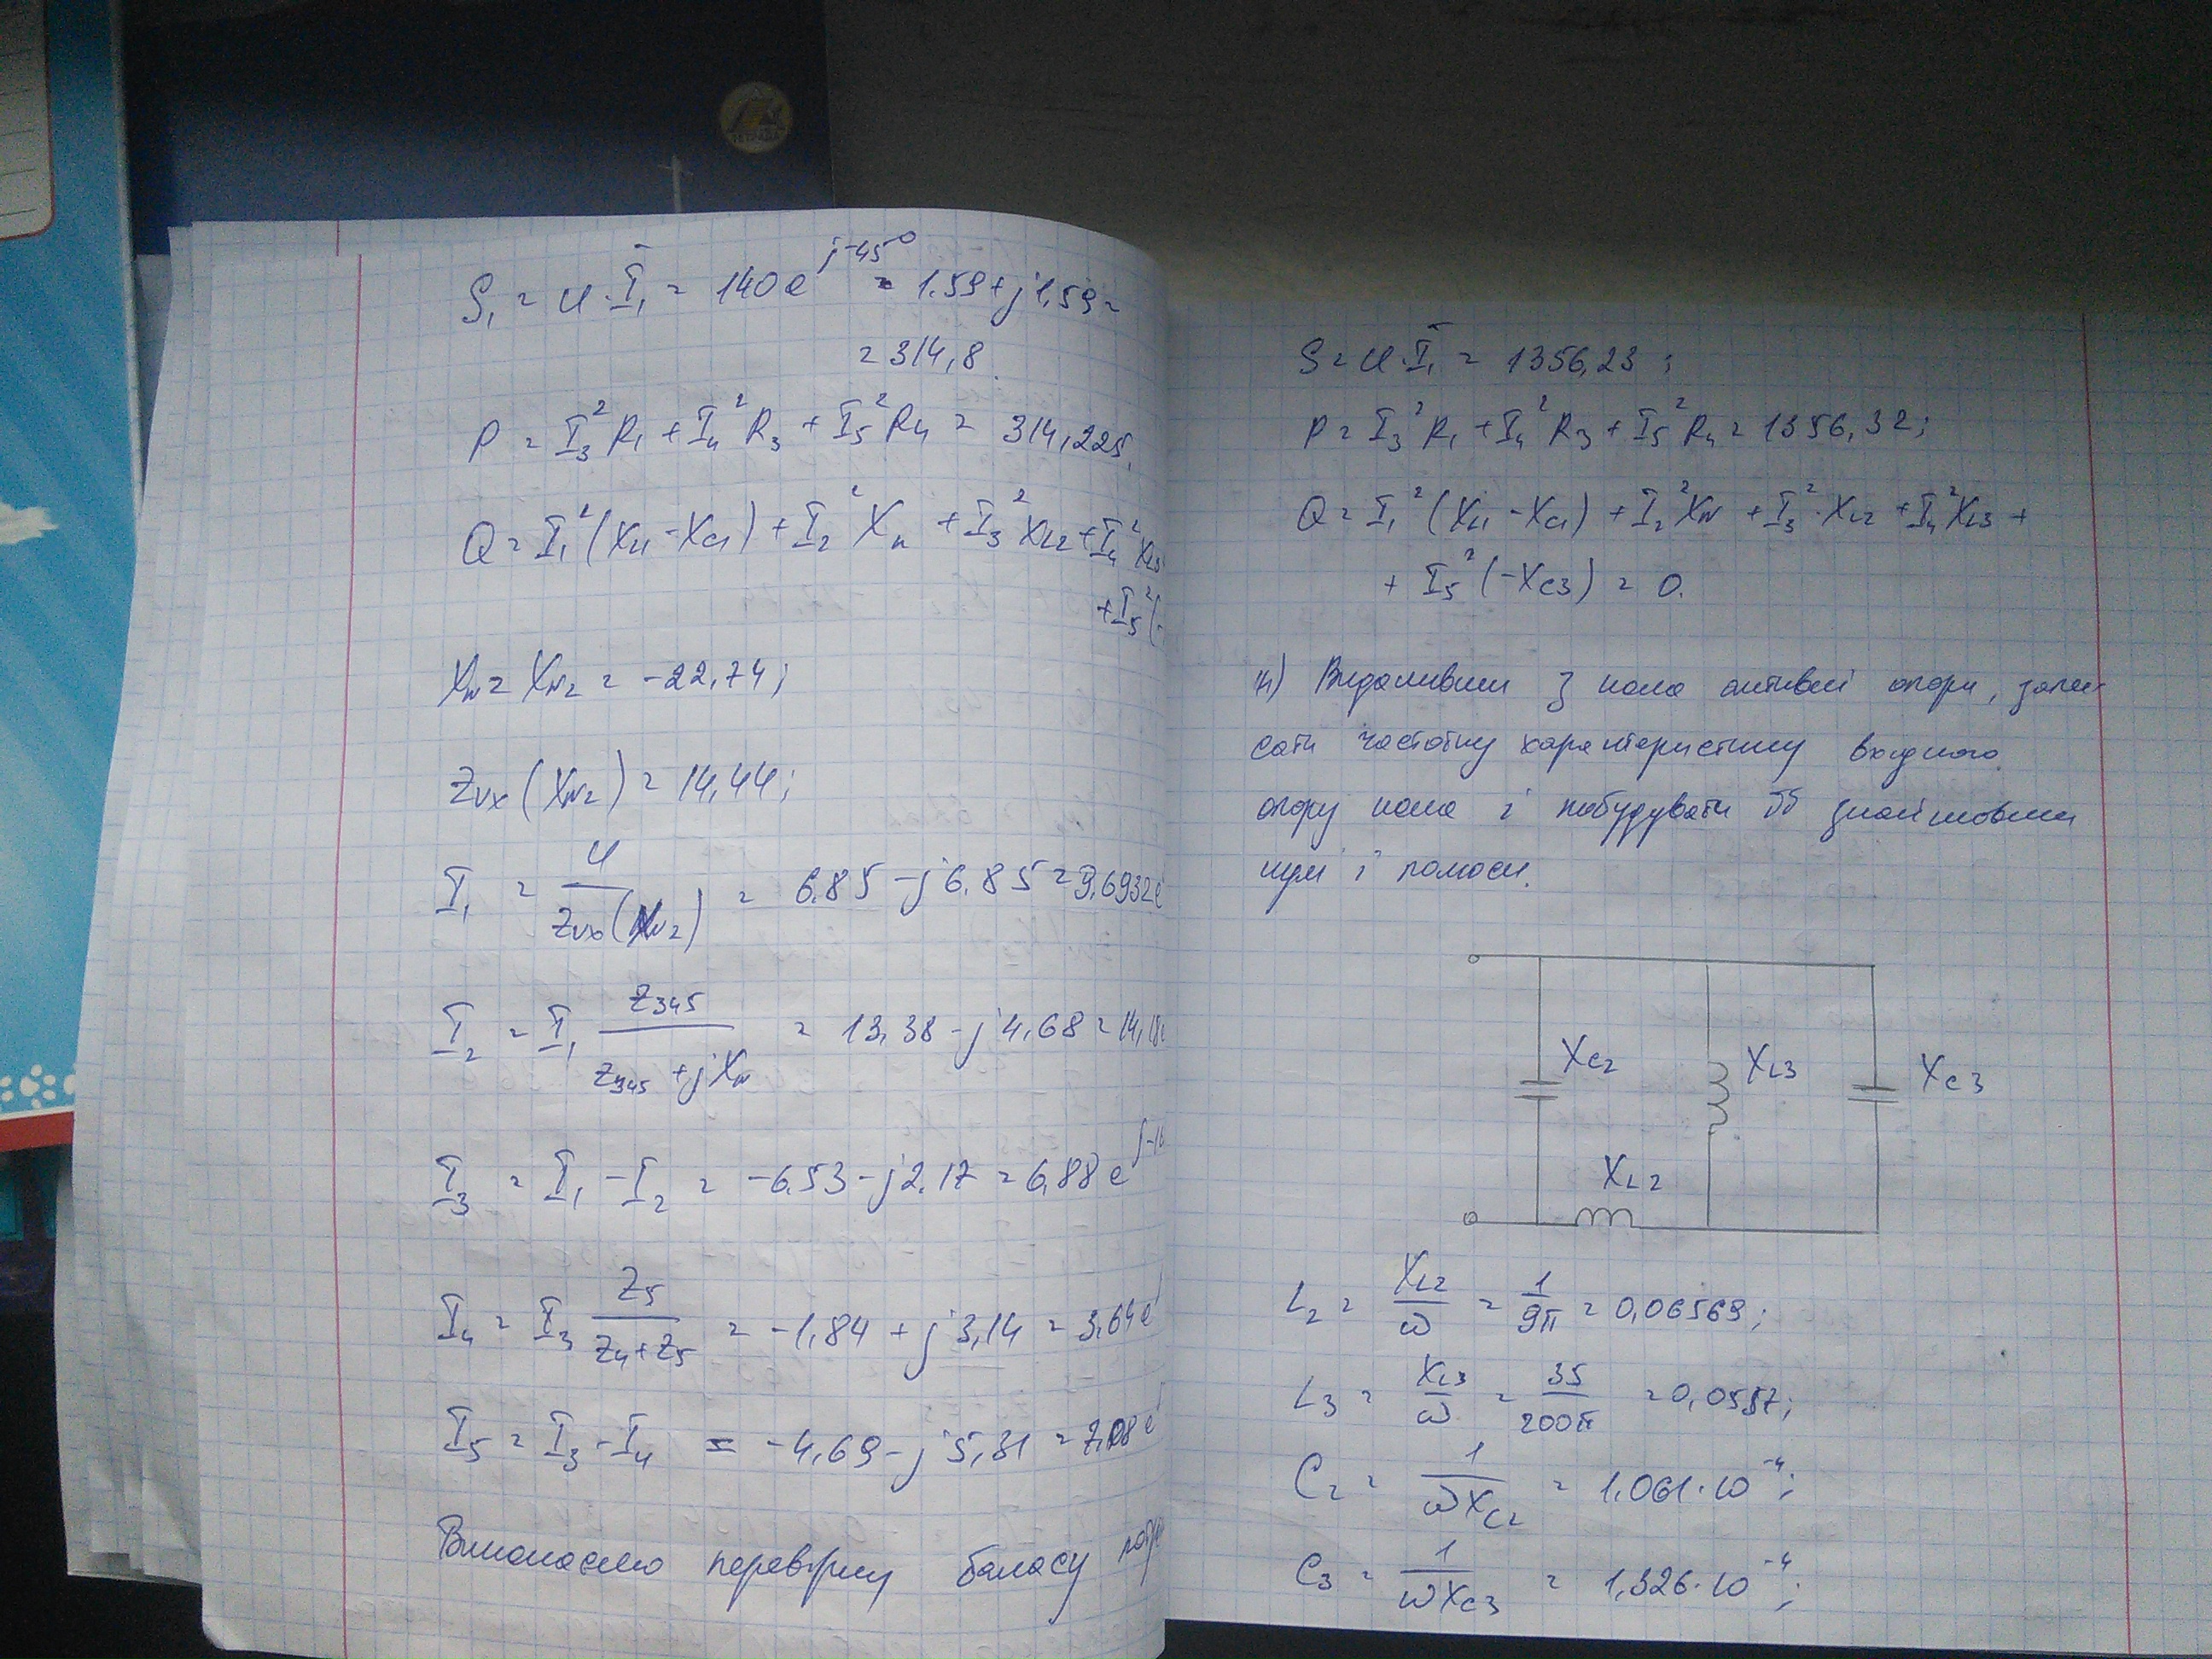 S₁ = U·Ī₁ = 140e^{j-45°} = 1.59+j1,59=
= 314,8.
P = I₃²R₁ + I₄²R₃ + I₅²R₄ = 314,225.
Q = I₁²(X_L1 - X_C1) + I₂²X_N + I₃²X_L2 + I₄²X_L3
+ I₅²(-
X_N = X_N2 = -22,74;
Z_VX(X_N2) = 14,44;
I₁ = U / Z_VX(X_N2) = 6.85 - j6.85 = 9,6932e
I₂ = I₁ Z₃₄₅ / (Z₃₄₅ + jX_N) = 13,38 - j4,68 = 14,18
I₃ = I₁ - I₂ = -6.53 - j2.17 = 6,88e^{j-1
I₄ = I₃ Z₅ / (Z₄+Z₅) = -1,84 + j3,14 = 3,64e
I₅ = I₃ - I₄ = -4,69 - j5,31 = 7,08e
Виконаємо перевірку баласу
S = U·Ī₁ = 1356,23;
P = I₃²R₁ + I₄²R₃ + I₅²R₄ = 1356,32;
Q = I₁²(X_L1 - X_C1) + I₂²X_N + I₃²·X_L2 + I₄²X_L3 +
+ I₅²(-X_C3) = 0.
Видаливши з кола активні опори, запи
сати частотну характеристику вхідного
опору кола і побудувати її знайшовши
нулі і полюси.
X_C2
X_L3
X_C3
X_L2
L₂ = X_L2/ω = 1/9π = 0,06569;
L₃ = X_L3/ω = 35/200π = 0,0557;
C₂ = 1/ωX_C2 = 1.061·10⁻⁴;
C₃ = 1/ωX_C3 = 1,326·10⁻⁴;